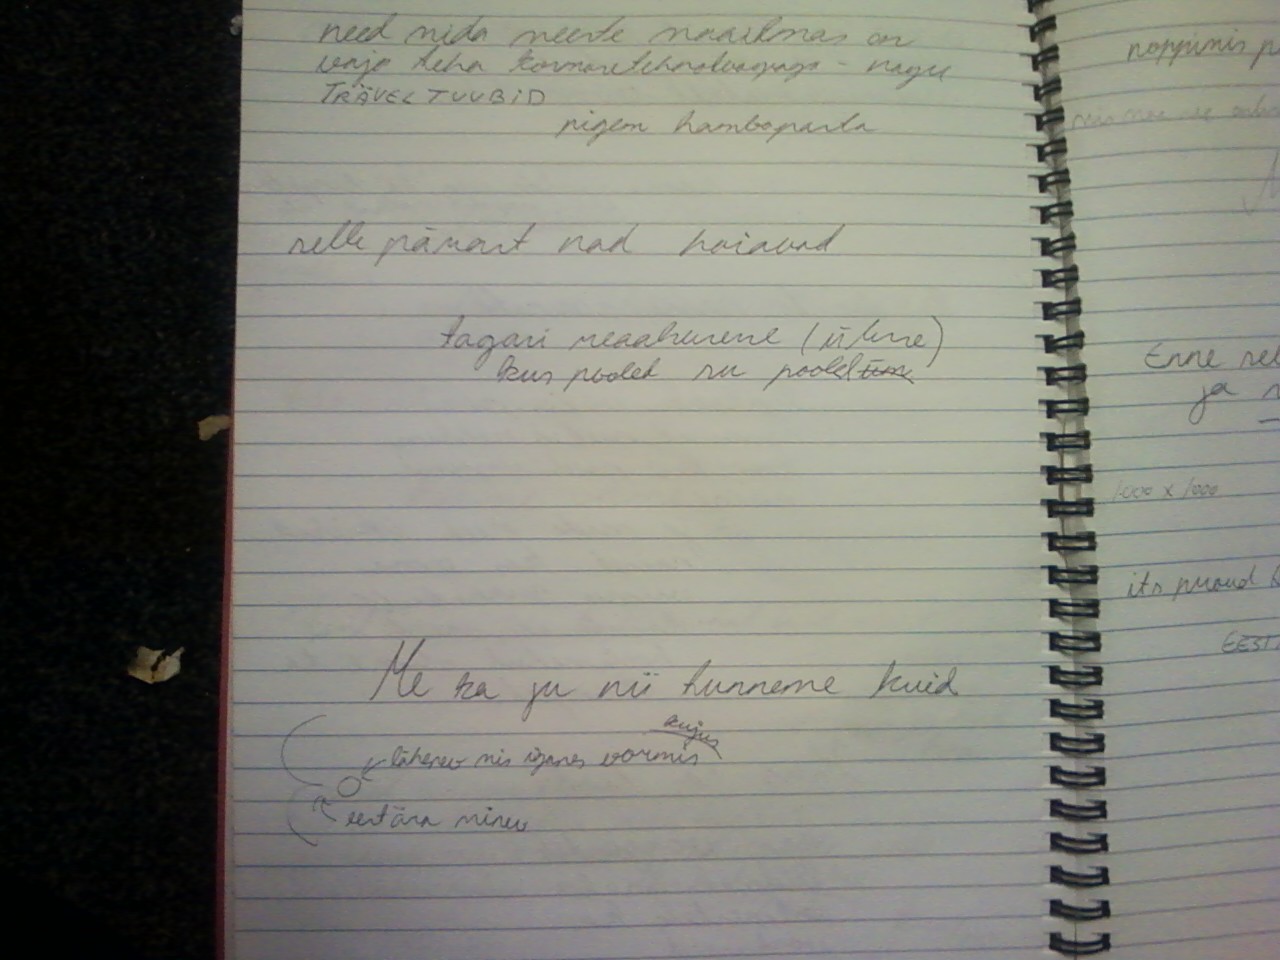 need mida meeste maailmas on
vaja teha kosmosetehnoloogiaga - nagu
TRÄVEL TUUBID
pigem hambapasta
selle pärast nad hoiavad
tagasi reaalsuse (üline)
kus pooled su pooled
Me ka ju nii tunneme kuid
kujus
lähenev mis iganes vormis
eest ära minev
noppimis p
Enne sel
ja
1000 x 1000
its proud
EEST